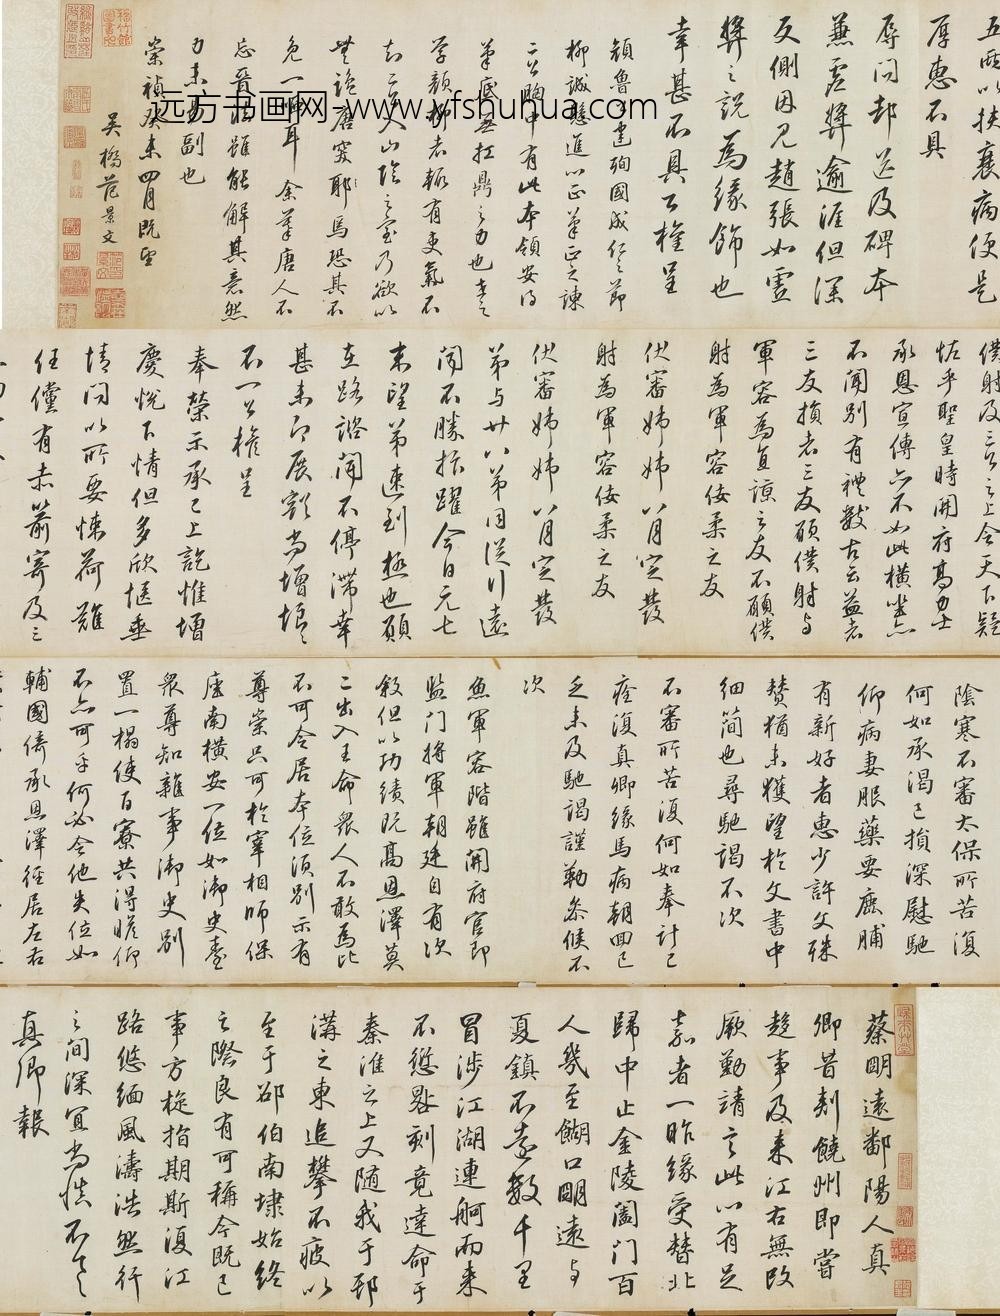 五兩以扶衰病便是
厚惠不具
辱問却送及碑本
獎逾涯但深
反側因見趙張如靈
獎之說為緣飾也
幸甚不具公權呈
顏魯公建殉國成仁之節
柳誠懸進心正筆正之諫
二公胸中有此本領安得
筆底無扛鼎之力也世之
學顏柳者輒有吏氣不
知二公入山陰之室乃欲以
唐突耶恐其不
免一嘲耳余摹唐人不
忘晉雖能解其意然
力未易副也
崇禎癸未四月既望
吳橋范景文
远方书画网-www.yfshuhua.com
僕射及三公之上今天下疑
怪乎聖皇時開府高力士
承恩宣傳亦不如此橫坐亦
不聞別有禮數古云益者
三友損者三友願僕射與
軍容為直諒之友不願僕
射為軍容佞柔之友
伏審姊姊八月定發
射為軍容佞柔之友
伏審姊姊八月定發
弟與廿八弟同從行遠
聞不勝抃躍今日元七
來望弟速到極也願
在路諮聞不停滯幸
甚未即展豁尚增悒悒
不一公權呈
奉榮示承已上訖惟增
慶悅下情但多欣愜垂
情問以所要悚荷難
任儻有赤箭寄及三
陰寒不審太保所苦復
何如承渴已損深慰馳
仰病妻服藥要鹿脯
有新好者惠少許父殊
賛猶未獲望於文書中
細簡也尋馳謁不次
不審所苦復何如奉計已
痊復真卿緣馬病朝回已
乏未及馳謁謹勒參候不
次
魚軍容階雖開府官即
監門將軍朝廷自有次
敘但以功績既高恩澤莫
二出入王命眾人不敢為比
不可令居本位須別示有
尊崇只可於宰相師保
座南橫安一位如御史臺
眾尊知雜事御史別
置一榻使百寮共得瞻仰
不亦可乎何必令他失位如
輔國倚承恩澤徑居左右
蔡明遠鄱陽人真
卿昔刺饒州即嘗
趍事及來江右無改
厥勤靖言此心有足
嘉者一昨緣受替北
歸中止金陵闔門百
人幾至餬口明遠與
夏鎮不遠數千里
冒涉江湖連舸而來
不愆晷刻竟達命于
秦淮之上又隨我于邗
溝之東追攀不疲以
至于邵伯南埭始終
之際良有可稱今既已
事方旋指期斯復江
路悠緬風濤浩然行
之間深宜尚慎不
真卿報